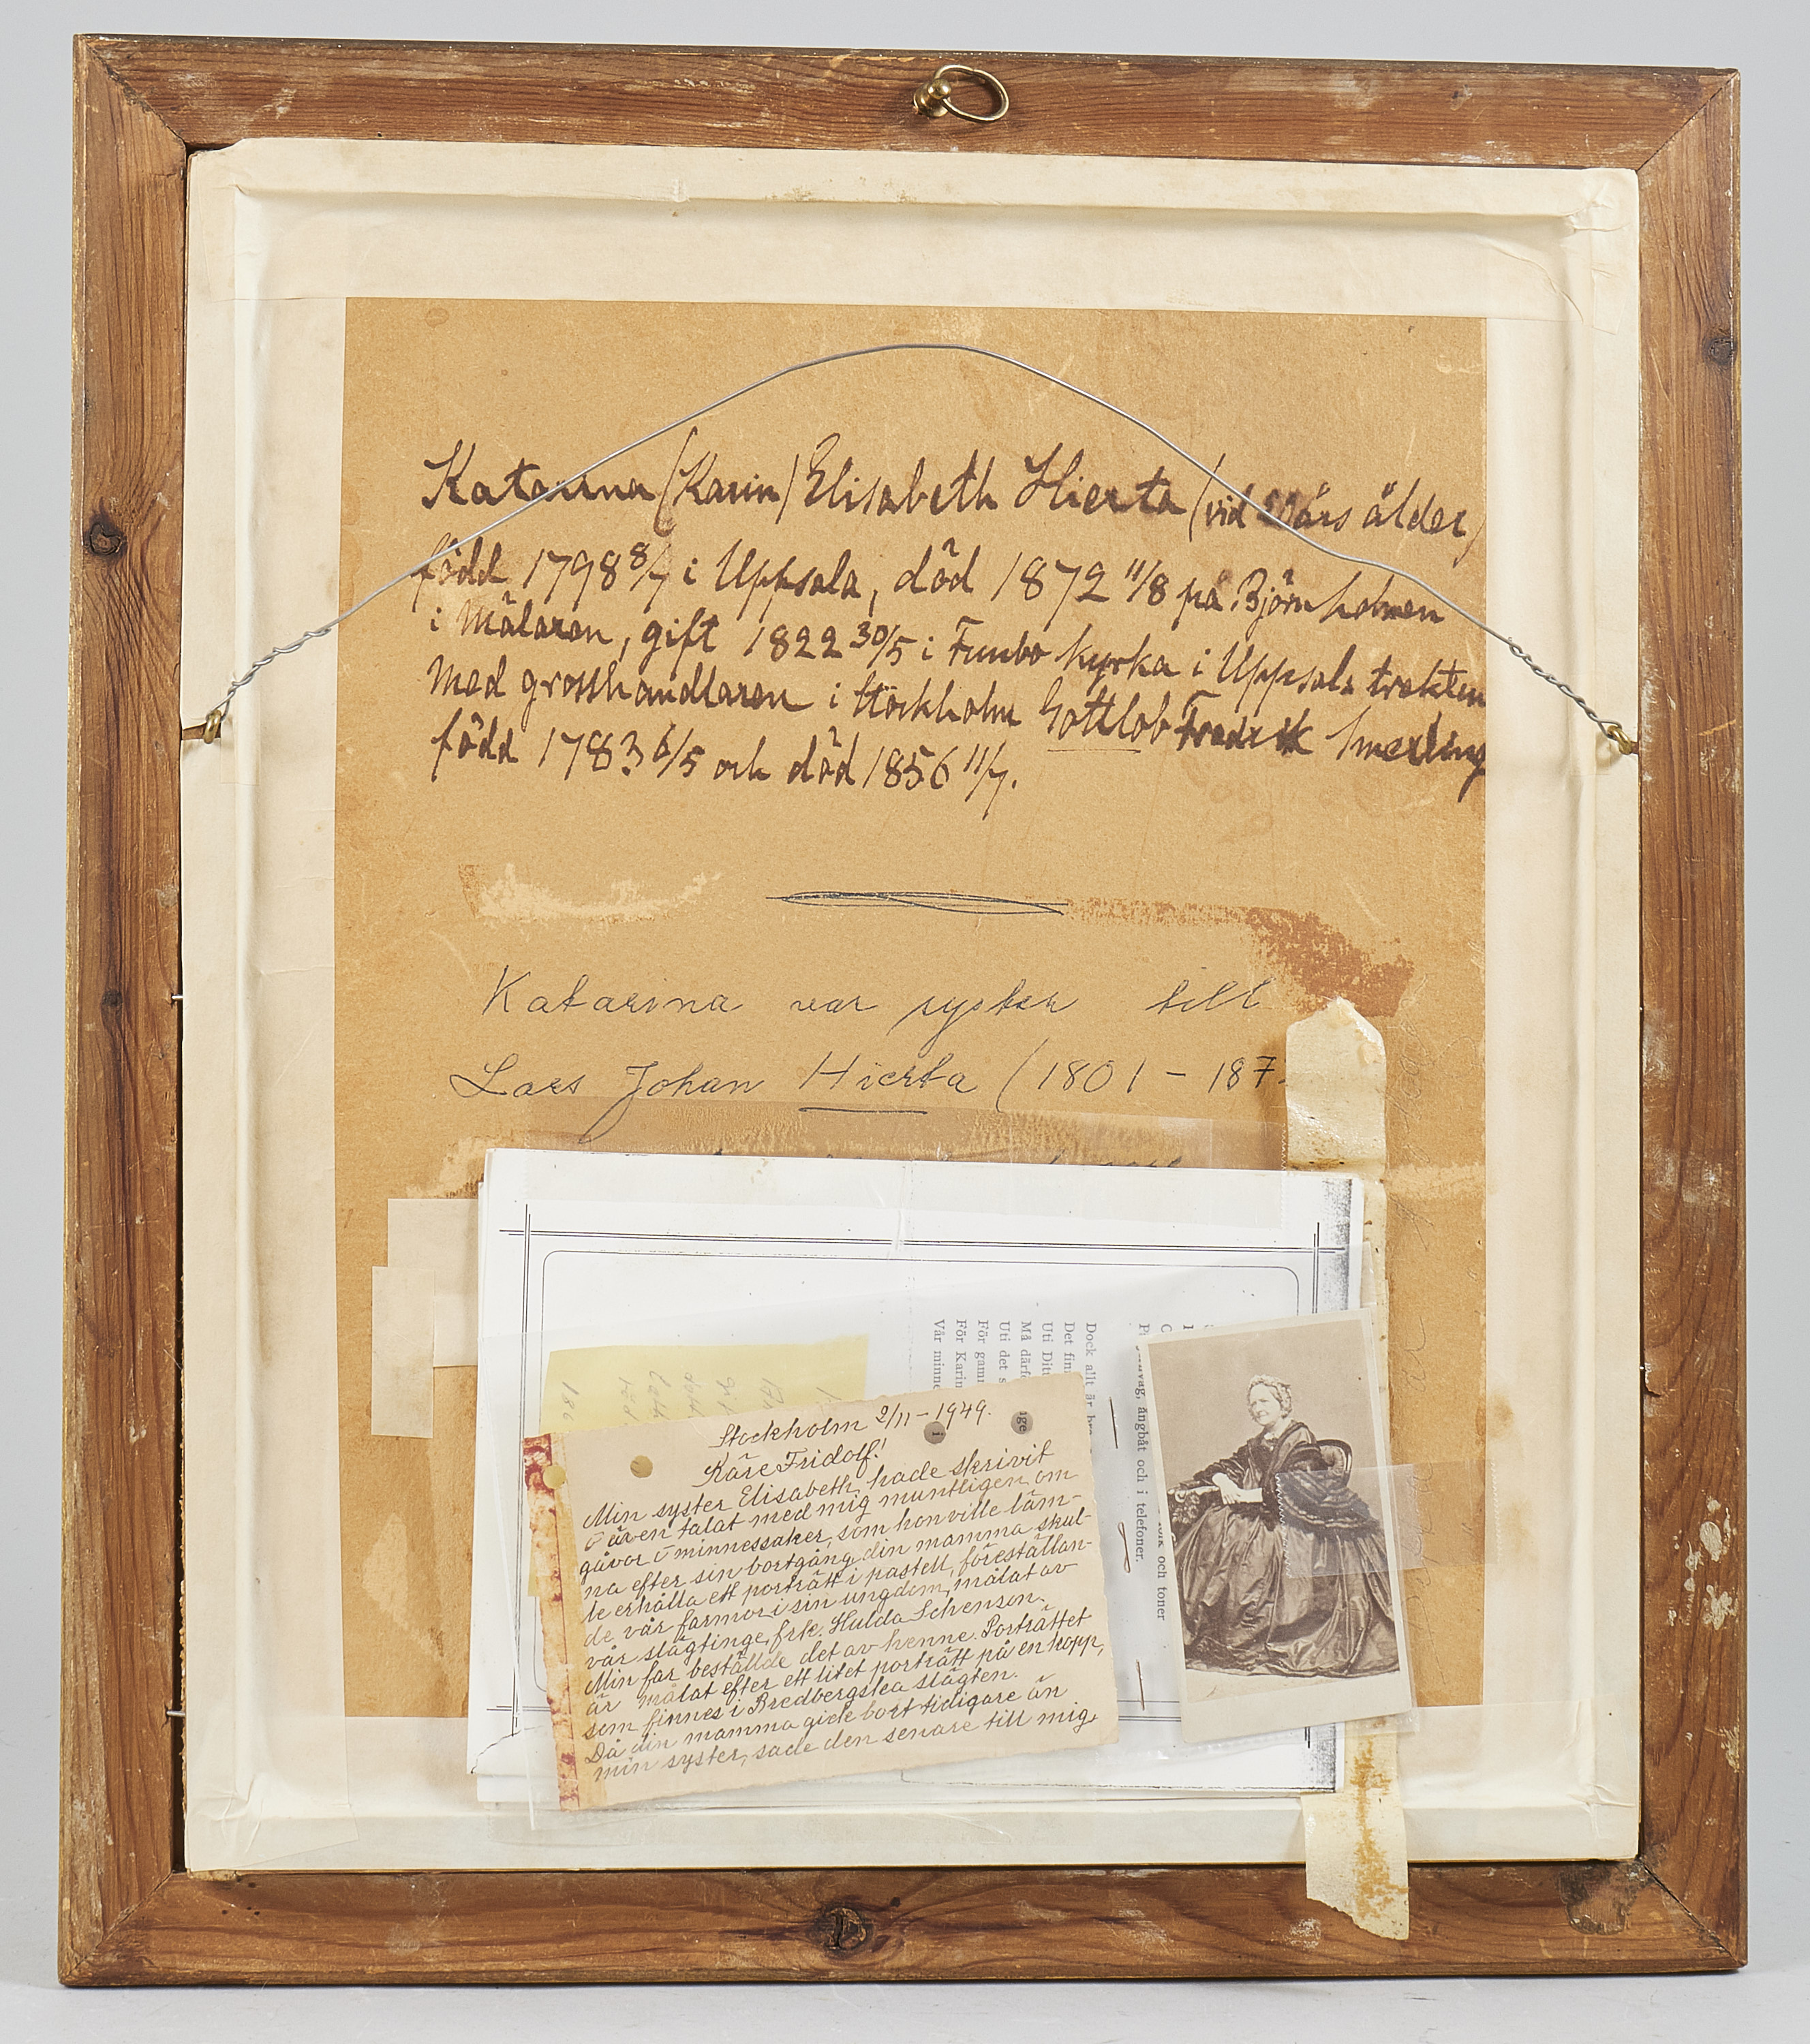 Katarina (Karin) Elisabeth Hierta (vid års ålder)
född 1798 8/7 i Uppsala, död 1872 11/8 på Björnholmen
i Mälaren, gift 1822 30/5 i Funbo kyrka i Uppsala trakten
med grosshandlaren i Stockholm Gottlob Fredrik Smerling
född 1783 6/5 och död 1856 11/7.
Katarina var syster till
Lars Johan Hierta (1801 – 187
Dock allt är
Det fin
Uti Dit
Må därf
Uti det s
För gamm
För Karin
Vår minne
ångbåt och i telefoner.
och toner
Stockholm 2/11 – 1949.
Käre Fridolf!
Min syster Elisabeth hade skrivit
o även talat med mig muntligen om
gåvor o minnessaker, som hon ville läm-
na efter sin bortgång, din mamma skul-
le erhålla ett porträtt i pastell, föreställan-
de vår farmor i sin ungdom, målat av
vår släktinge, frk. Hulda Schenson.
Min far beställde det av henne. Porträttet
är målat efter ett litet porträtt på en kopp,
som finnes i Bredbergska släkten.
Då din mamma gick bort tidigare än
min syster, sade den senare till mig,